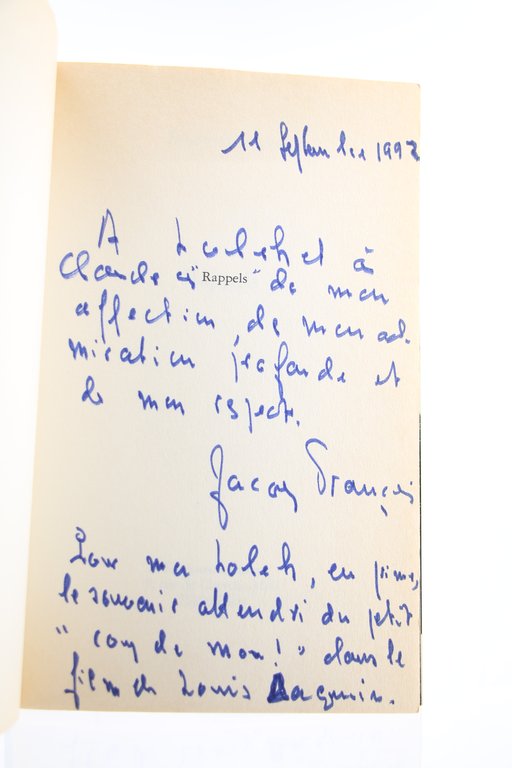 11 Septembre 1992
A Loleh et à
Claude ces "Rappels" de mon
affection, de mon ad-
miration profonde et
de mon respect.
Jacques François
Pour ma Loleh, en prime,
le souvenir attendri du petit
" de " dans le
film de Louis Daquin.